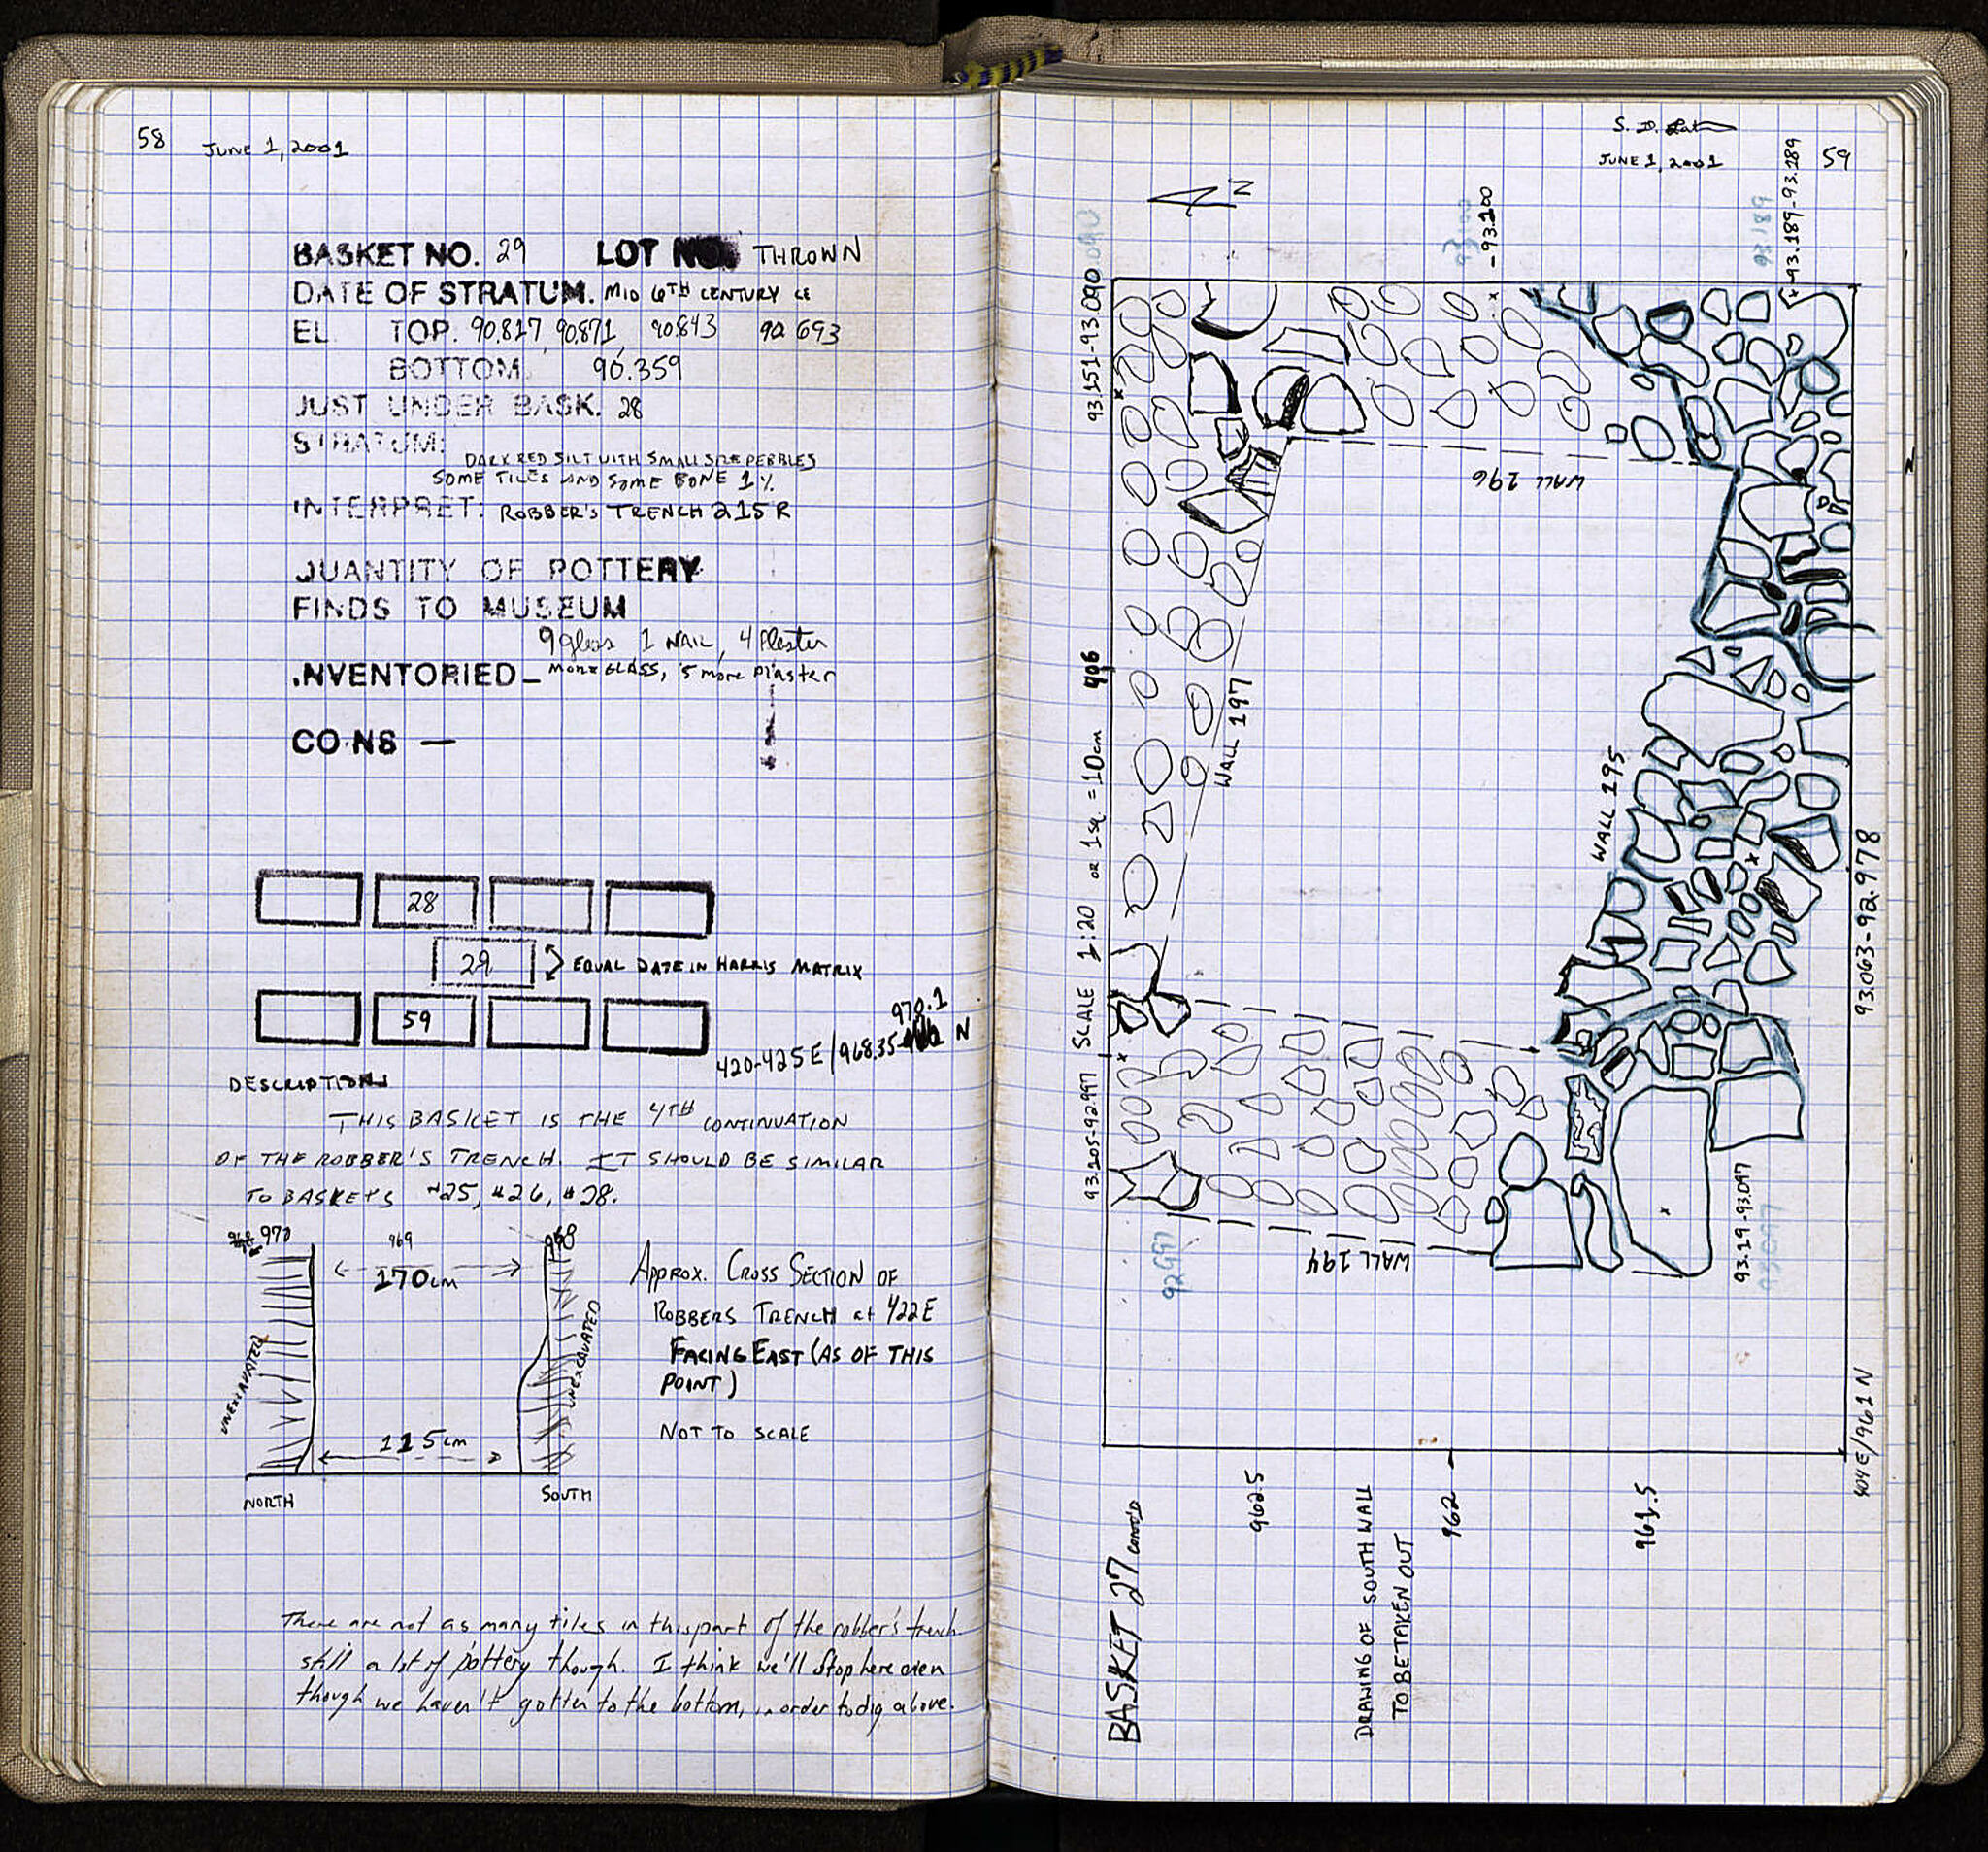 58 June 1, 2001
BASKET NO. 29 LOT NO. THROWN
DATE OF STRATUM. MID 6TH CENTURY CE
EL. TOP. 90.817, 90.871, 90.843
BOTTOM. 90.359
JUST UNDER BASK. 28
STRATUM:
DARK RED SILT WITH SMALL SIZE PEBBLES
SOME TILES AND SOME BONE 1%
INTERPRET: ROBBER'S TRENCH 215 R
QUANTITY OF POTTERY
FINDS TO MUSEUM
9 glass 1 NAIL, 4 Plaster
INVENTORIED – MORE GLASS, 5 more Plaster
COINS —
28
29 EQUAL DATE IN HARRIS MATRIX
59
970.1
420-425 E / 968.35- N
DESCRIPTION
THIS BASKET IS THE 4TH CONTINUATION
OF THE ROBBER'S TRENCH. IT SHOULD BE SIMILAR
TO BASKETS #25, #26, #28.
970 969 968
170cm
UNEXCAVATED
UNEXCAVATED
115cm
NORTH SOUTH
APPROX. CROSS SECTION OF
ROBBERS TRENCH at 422E
FACING EAST (AS OF THIS
POINT)
NOT TO SCALE
There are not as many tiles in this part of the robber's trench
still a lot of pottery though. I think we'll stop here even
though we haven't gotten to the bottom, in order to dig above.
S. D.
JUNE 1, 2001 59
N
93.151-93.090
-93.200
93.189-93.189
93189
WALL 196
WALL 197
406
SCALE 1:20 OR 1 sq. = 10cm
93.205-92.997
WALL 195
93.063-92.978
WALL 194
93.19-93.097
92997
93.097
404E/961N
BASKET 27 cont'd
962.5
DRAWING OF SOUTH WALL
TO BE TAKEN OUT
962
961.5